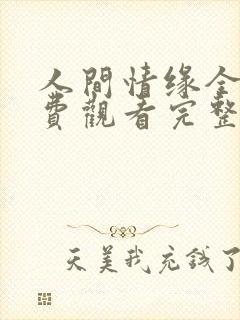 人間情缘全
費觀看完整
天美我充錢了